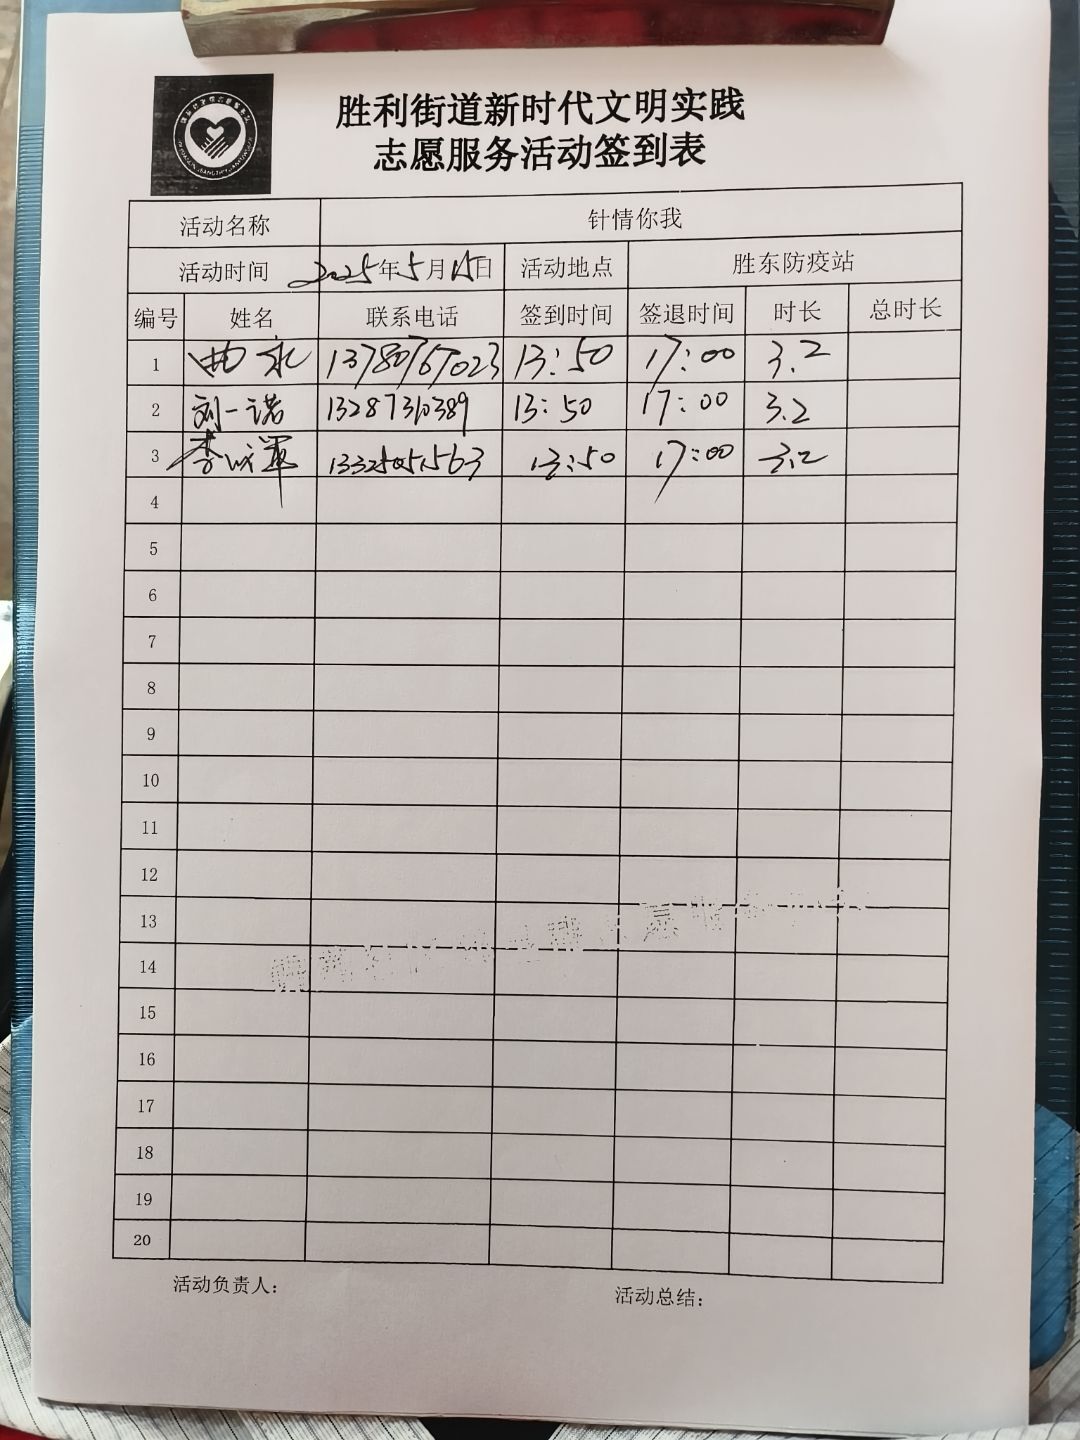 胜利街道新时代文明实践
志愿服务活动签到表
活动名称 针情你我
活动时间 2025年5月15日 活动地点 胜东防疫站
编号 姓名 联系电话 签到时间 签退时间 时长 总时长
1 曲永 13780767023 13:50 17:00 3.2
2 刘一诺 13287310389 13:50 17:00 3.2
3 李成军 13325051563 13:50 17:00 3.2
4
5
6
7
8
9
10
11
12
13
14
15
16
17
18
19
20
活动负责人: 活动总结: